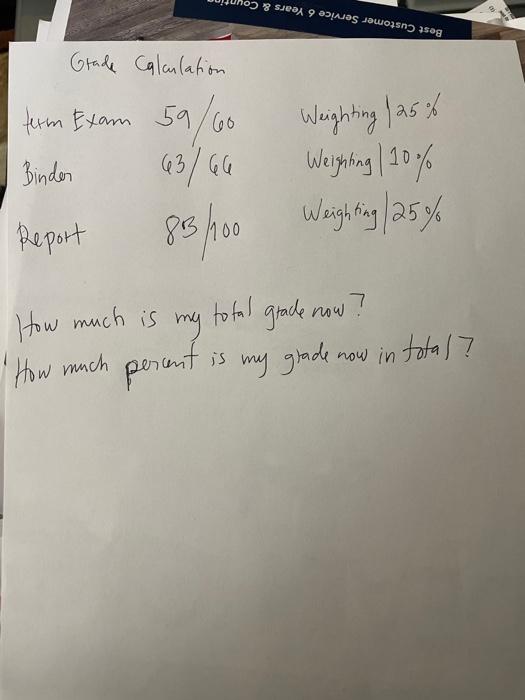 Best Customer Service 6 Years & Counting
Grade Calculation
term Exam 59/60 Weighting | 25%
Binder 63/66 Weighting | 10%
Report 83/100 Weighting | 25%
How much is my total grade now?
How much percent is my grade now in total?